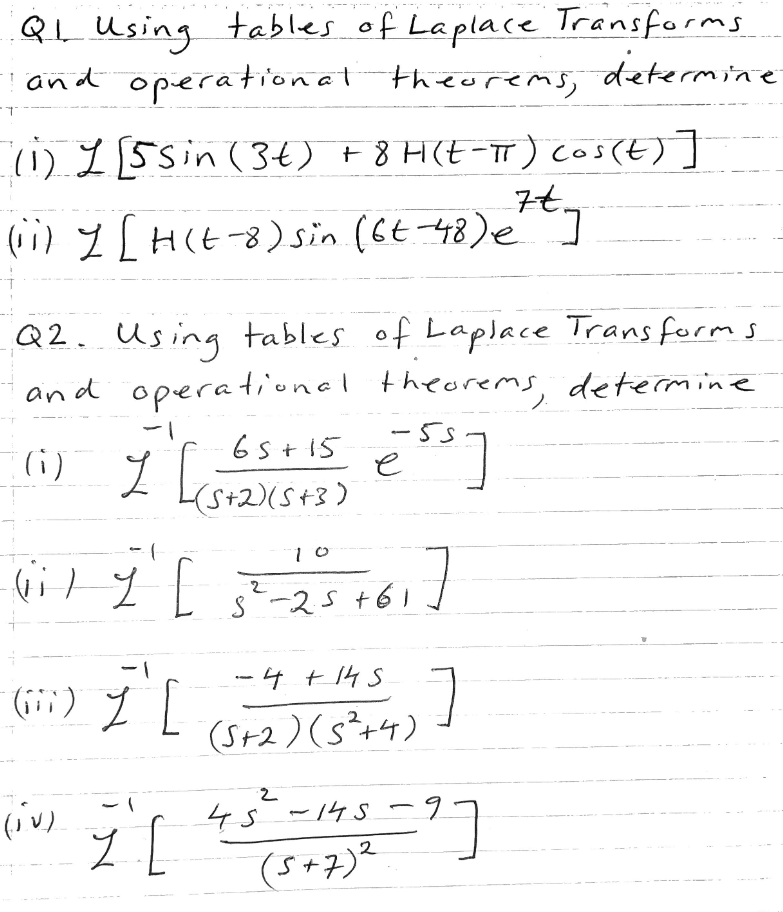 Q1 Using tables of Laplace Transforms
and operational theorems, determine
(i) ℒ [5 sin (3t) + 8 H(t-π) cos(t)]
(ii) ℒ [H(t-8) sin (6t-48) e^{7t}]
Q2. Using tables of Laplace Transforms
and operational theorems, determine
(i) ℒ^{-1} [ (6s+15)/((s+2)(s+3)) e^{-5s} ]
(ii) ℒ^{-1} [ 10/(s²-2s+61) ]
(iii) ℒ^{-1} [ (-4+14s)/((s+2)(s²+4)) ]
(iv) ℒ^{-1} [ (4s²-14s-9)/(s+7)² ]